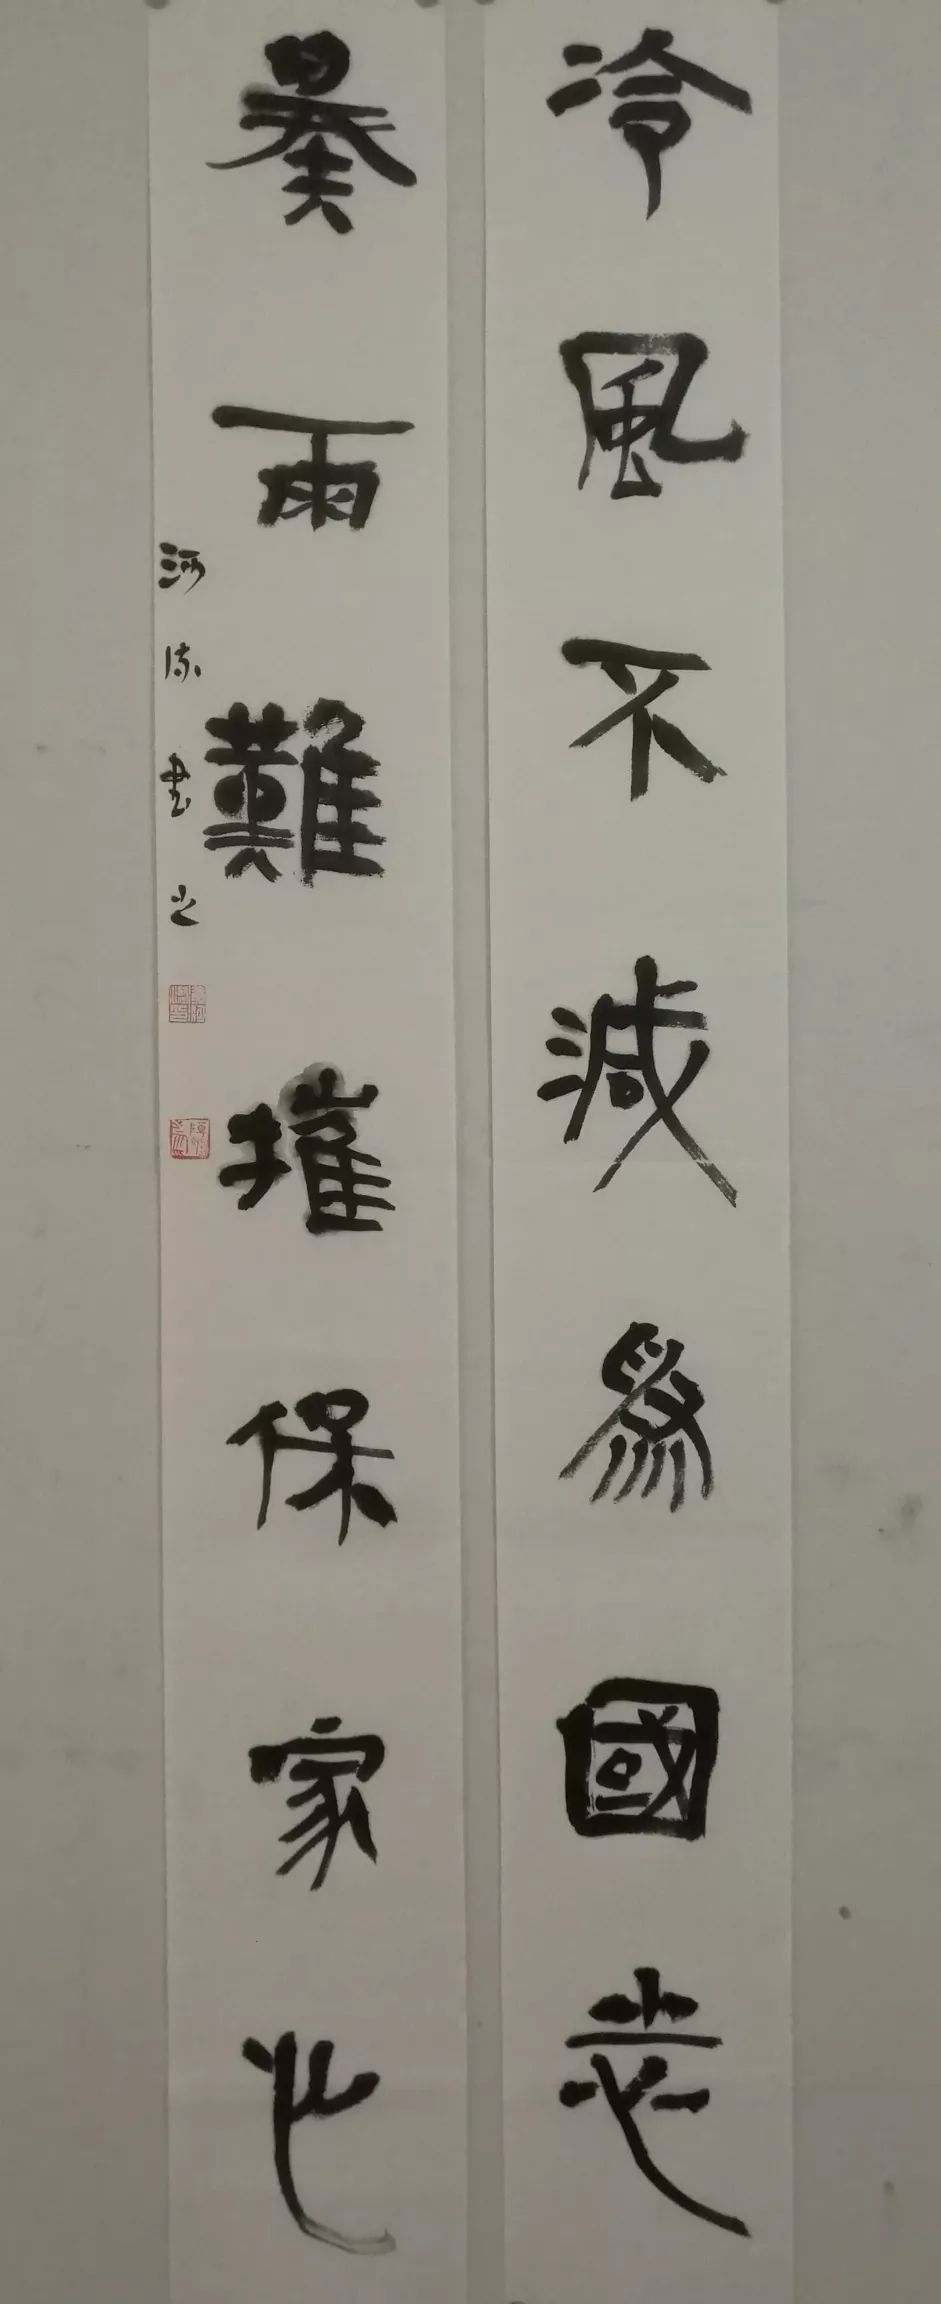 冷風不減爲國志
暴雨難摧保家心
河源書之